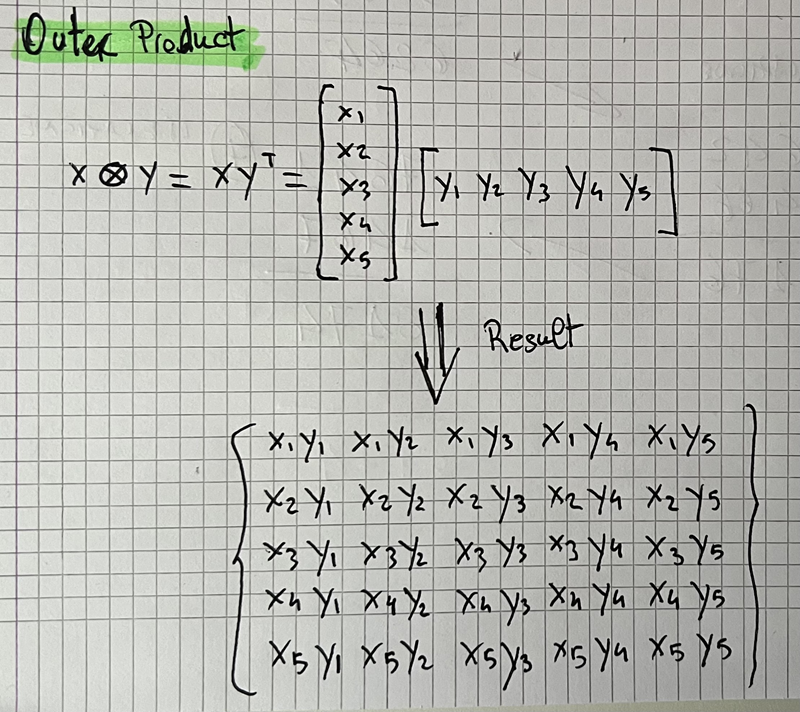 Outer Product
x ⊗ y = x y^T = [x1 x2 x3 x4 x5] [y1 y2 y3 y4 y5]
Result
x1y1 x1y2 x1y3 x1y4 x1y5
x2y1 x2y2 x2y3 x2y4 x2y5
x3y1 x3y2 x3y3 x3y4 x3y5
x4y1 x4y2 x4y3 x4y4 x4y5
x5y1 x5y2 x5y3 x5y4 x5y5